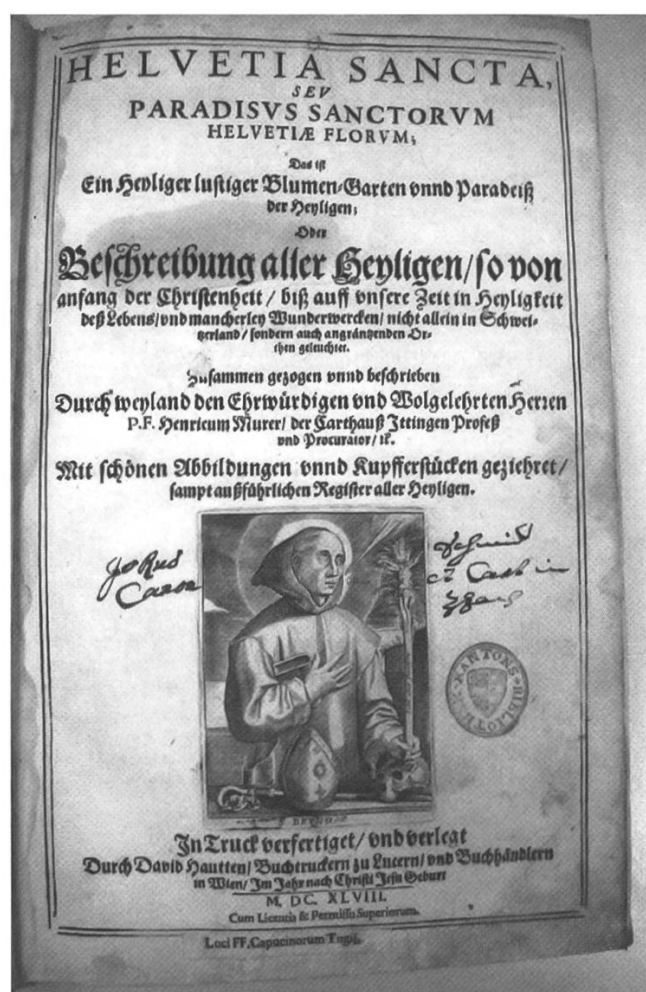 HELVETIA SANCTA,
SEV
PARADISVS SANCTORVM
HELVETIÆ FLORVM;
Das ist
Ein Heyliger lustiger Blumen-Garten vnnd Paradeiß
der Heyligen;
Oder
Beschreibung aller Heyligen/ so von
anfang der Christenheit / biß auff vnsere Zeit in Heyligkeit
deß Lebens/ vnd mancherley Wunderwercken/ nicht allein in Schwei-
tzerland/ sondern auch angräntzenden Or-
then geleuchtet.
Zusammen gezogen vnnd beschrieben
Durch weyland den Ehrwürdigen vnd Wolgelehrten Herren
P.F. Henricum Murer/ der Carthauß Ittingen Profeß
vnd Procurator/ ꝛc.
Mit schönen Abbildungen vnnd Kupfferstücken geziehret/
sampt außführlichen Register aller Heyligen.
KANTONS BIBLIOTH
In Truck verfertiget/ vnd verlegt
Durch David Hautten/ Buchtruckern zu Lucern/ vnd Buchhändlern
in Wien/ Im Jahr nach Christi Jesu Geburt
M. DC. XLVIII.
Cum Licentia & Permissu Superiorum.
Loci FF. Capucinorum Tugij.